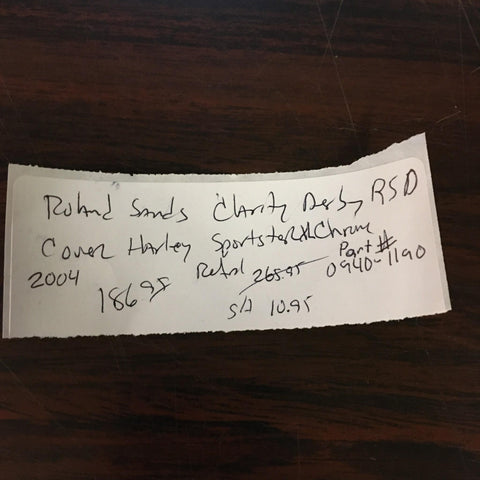 Roland Sands Clarity Derby RSD
Cover Harley Sportster XL Chrome
2004 Retail 265.95 Part# 0940-1190
186 98
S/H 10.95